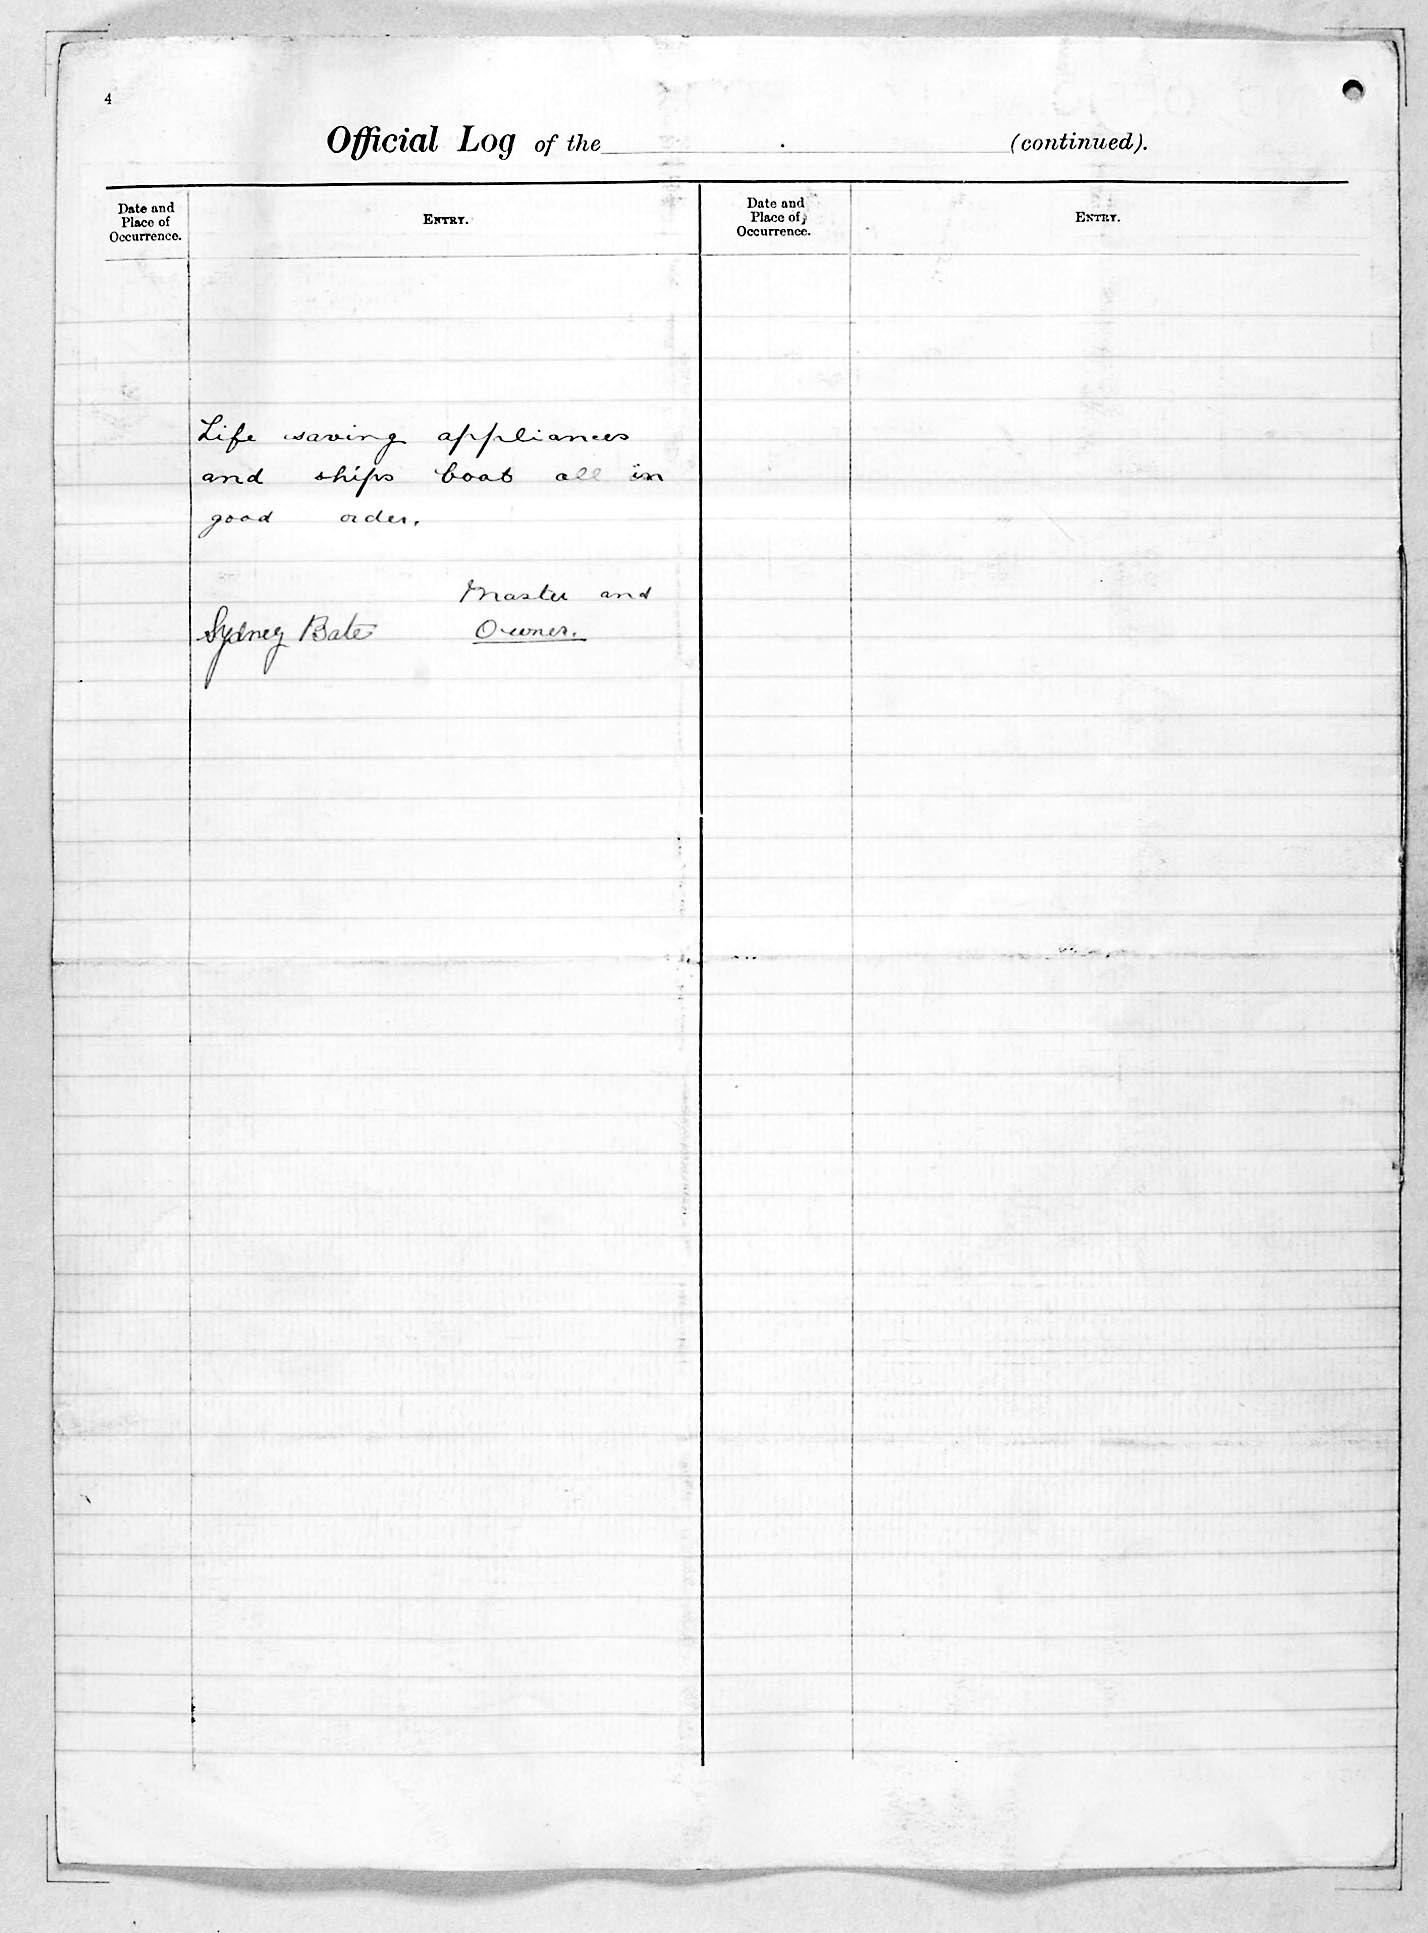 4
Official Log of the (continued).
Date and
Place of
Occurrence.
ENTRY.
Date and
Place of
Occurrence.
ENTRY.
Life saving appliances
and ships boat all in
good order.
Master and
Sydney Bate Owner.